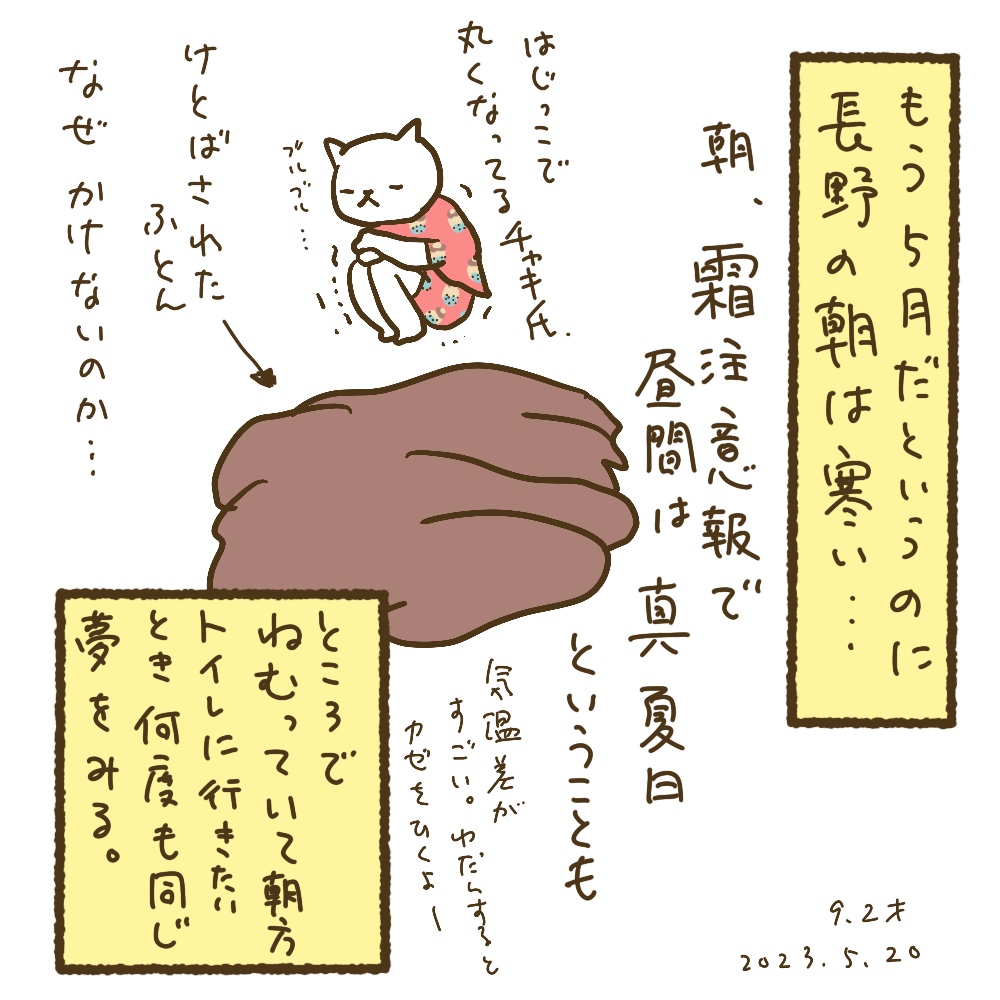 もう5月だというのに
長野の朝は寒い...
朝、霜注意報で
昼間は真夏日
ということも
気温差が
すごい。わだらすると
カゼをひくよー
はじっこで
丸くなってる
チャキ氏.
ブルブル...
けとばされた
ふとん
なぜかけないのか...
ところで
ねむっていて朝方
トイレに行きたい
とき何度も同じ
夢をみる。
9.2才
2023.5.20